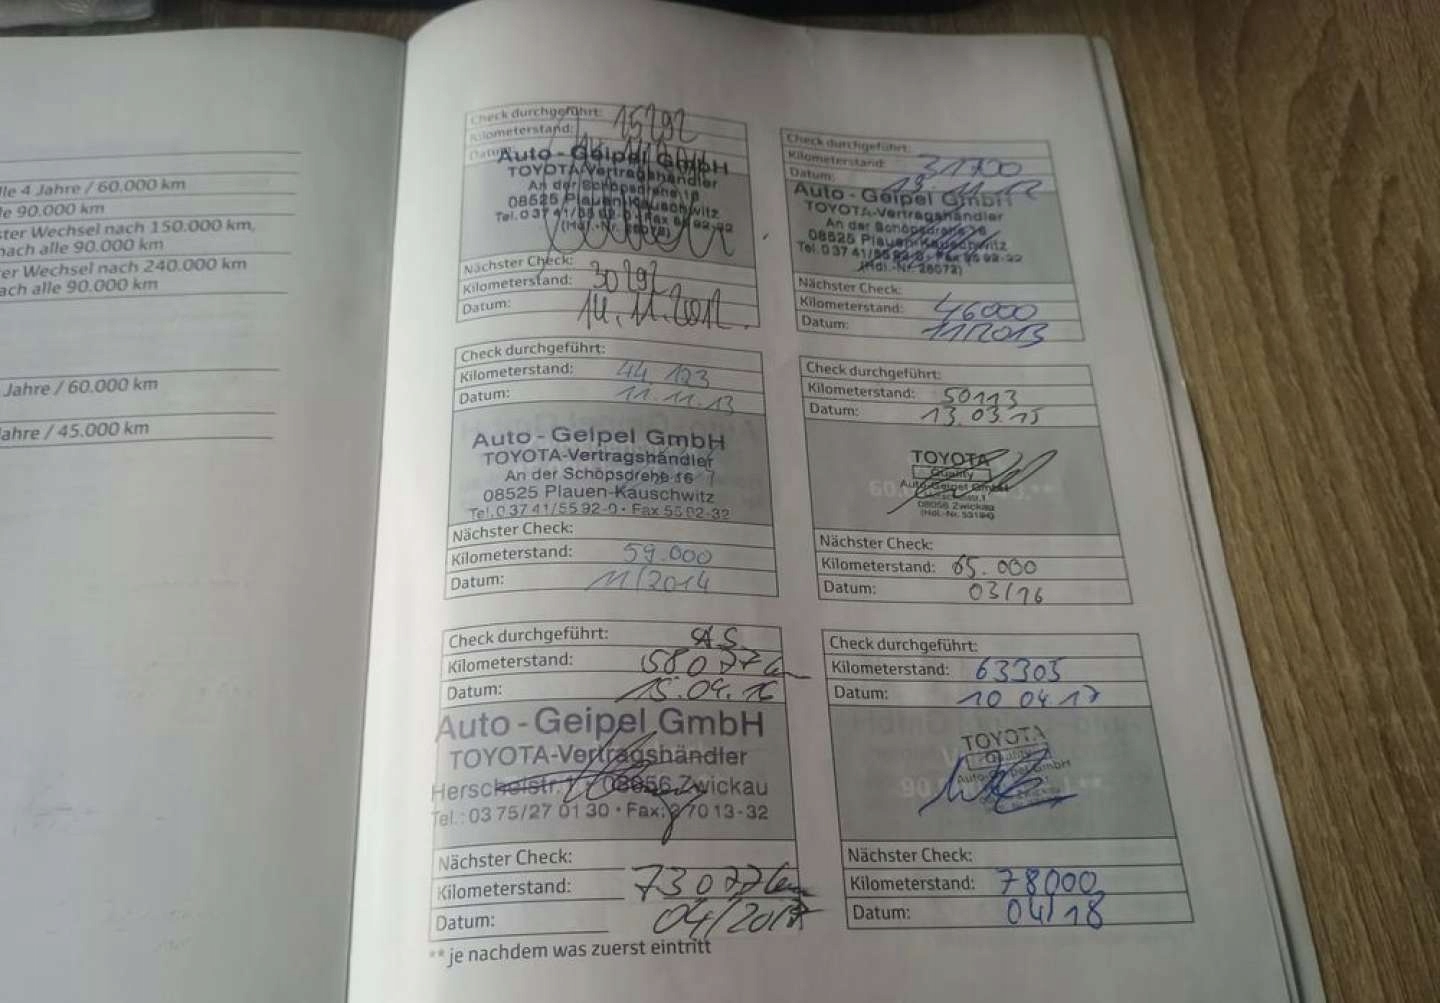 lle 4 Jahre / 60.000 km
le 90.000 km
ster Wechsel nach 150.000 km,
nach alle 90.000 km
er Wechsel nach 240.000 km
ach alle 90.000 km
Jahre / 60.000 km
ahre / 45.000 km
Check durchgeführt:
Kilometerstand: 15292
Auto - Geipel GmbH
TOYOTA-Vertragshändler
An der Schöpsdrehe 16
08525 Plauen-Kauschwitz
Tel. 0 37 41/55 92-0 · Fax 55 92-32
(Hdl.-Nr. 26072)
Nächster Check:
Kilometerstand: 30292
Datum: 14.11.2012.
Check durchgeführt:
Kilometerstand: 31700
Datum: 19.11.12
Auto - Geipel GmbH
TOYOTA-Vertragshändler
An der Schöpsdrehe 16
08525 Plauen-Kauschwitz
Tel. 0 37 41/55 92-0 · Fax 55 92-32
(Hdl.-Nr. 26072)
Nächster Check:
Kilometerstand: 46000
Datum: 11/2013
Check durchgeführt:
Kilometerstand: 44 123
Datum: 11.11.13
Auto - Geipel GmbH
TOYOTA-Vertragshändler
An der Schöpsdrehe 16
08525 Plauen-Kauschwitz
Tel. 0 37 41/55 92-0 · Fax 55 92-32
Nächster Check:
Kilometerstand: 59.000
Datum: 11/2014
Check durchgeführt:
Kilometerstand: 50113
Datum: 13.03.15
TOYOTA
Quality
Auto-Geipel GmbH
08056 Zwickau
Nächster Check:
Kilometerstand: 65.000
Datum: 03/16
Check durchgeführt:
Kilometerstand: 58077km
Datum: 15.04.16
Auto - Geipel GmbH
TOYOTA-Vertragshändler
Herschelstr. 1 · 08056 Zwickau
Tel.: 03 75/27 01 30 · Fax: 2 70 13-32
Nächster Check:
Kilometerstand: 73077km
Datum: 04/2017
Check durchgeführt:
Kilometerstand: 63305
Datum: 10 04 17
TOYOTA
Quality
Auto-Geipel GmbH
Nächster Check:
Kilometerstand: 78000
Datum: 04/18
** je nachdem was zuerst eintritt